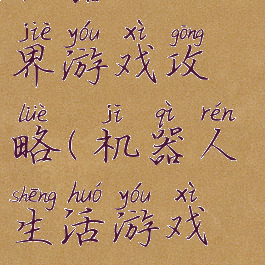 jiè yóu xì gōng
界游戏攻
lüè jī qì rén
略(机器人
shēng huó yóu xì
生活游戏